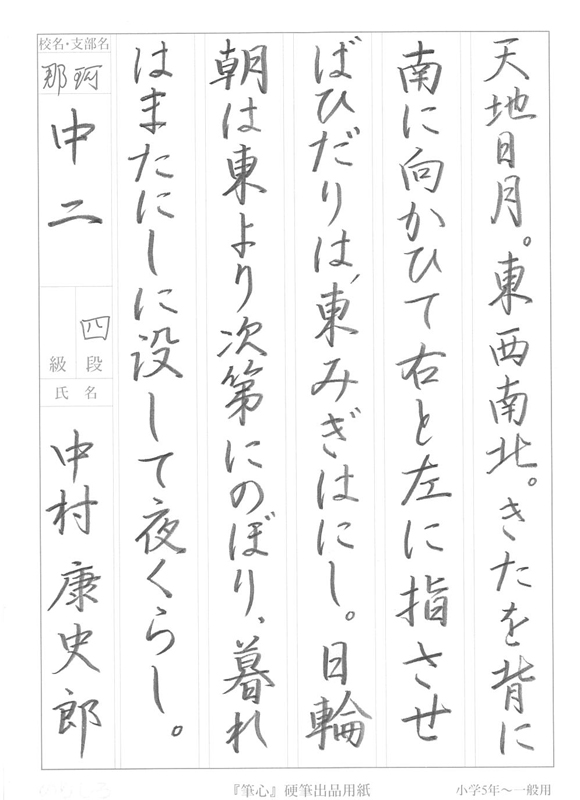 天地日月。東西南北。きたを背に
南に向かひて右と左に指させ
ばひだりは、東みぎはにし。日輪
朝は東より次第にのぼり、暮れ
はまたにしに没して夜くらし。
校名・支部名
那珂
中二
四
段
級
氏名
中村康史郎
『筆心』硬筆出品用紙
小学5年〜一般用